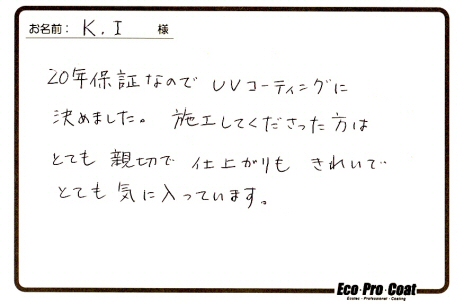 お名前： K．I 様
20年保証なので UVコーティングに
決めました。 施工してくださった方は
とても 親切で 仕上がりも きれいで
とても 気に入っています。
Eco・Pro・Coat
Ecolec・Professional・Coating